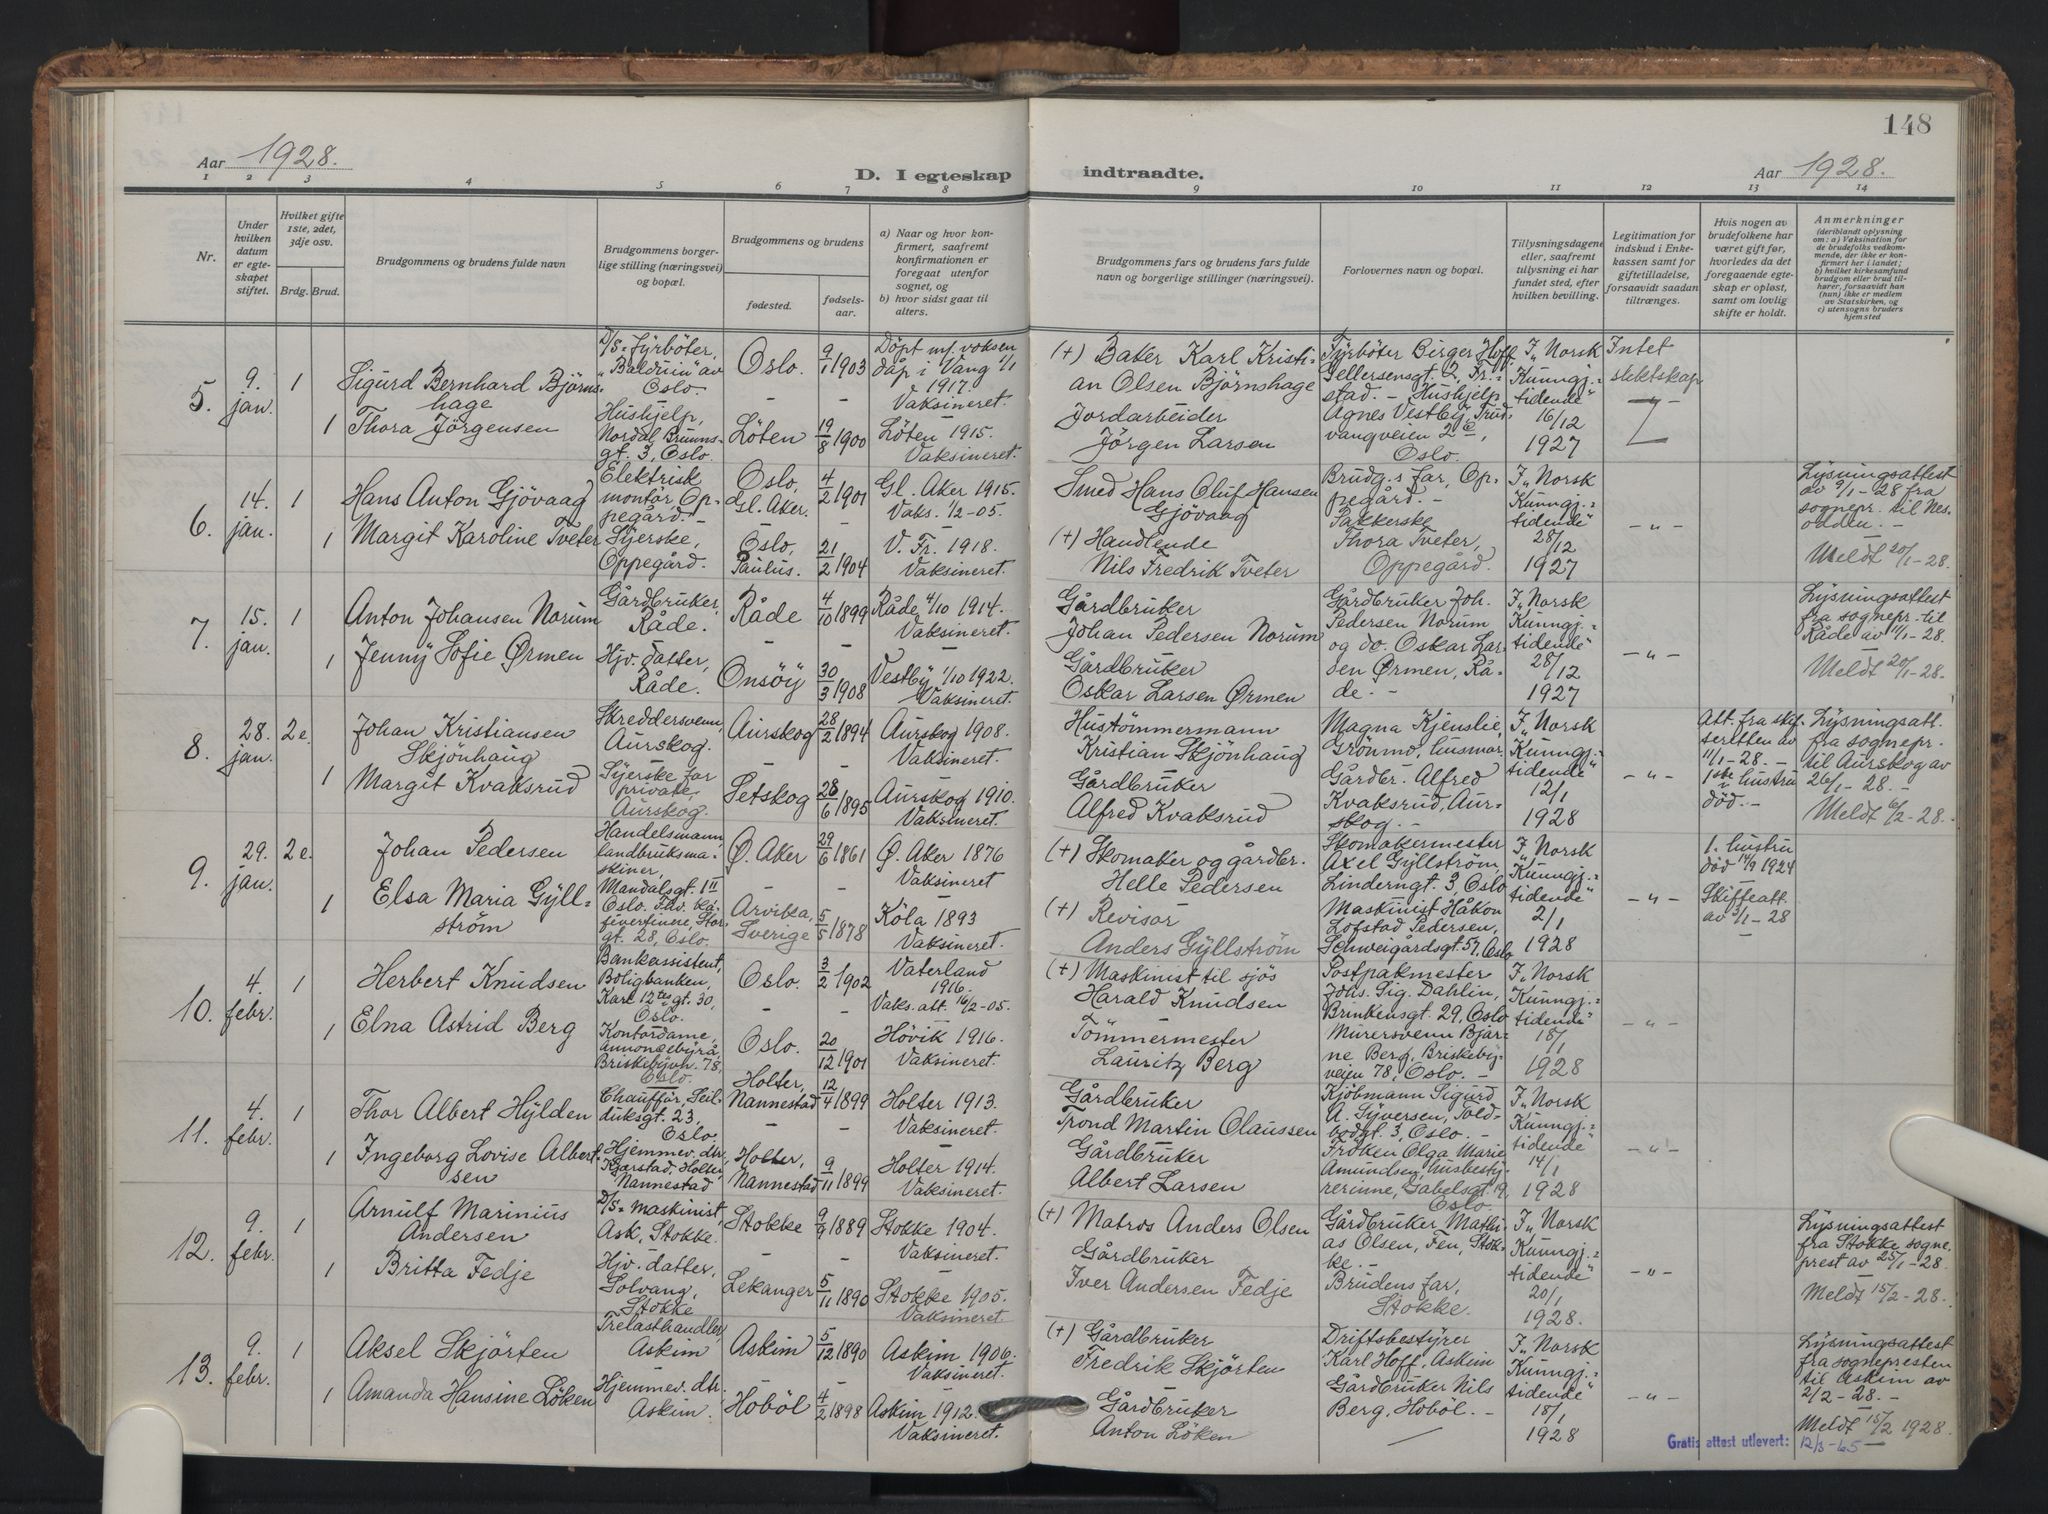 Aar 1928.
D. I egteskap
indtraadte.
Aar 1928.
148
1 2 3 4 5 6 7 8
9 10 11 12 13 14
Nr.
Under hvilken datum er egteskapet stiftet.
Hvilket gifte 1ste, 2det, 3dje osv.
Brdg. Brud.
Brudgommens og brudens fulde navn
Brudgommens borgerlige stilling (næringsvei) og bopæl.
Brudgommens og brudens
fødested.
fødselsaar.
a) Naar og hvor konfirmert, saafremt konfirmationen er foregaat utenfor sognet, og
b) hvor sidst gaat til alters.
Brudgommens fars og brudens fars fulde navn og borgerlige stillinger (næringsvei).
Forlovernes navn og bopæl.
Tillysningsdagene eller, saafremt tillysning ei har fundet sted, efter hvilken bevilling.
Legitimation for indskud i Enkekassen samt for giftetilladelse, forsaavidt saadan tiltrænges.
Hvis nogen av brudefolkene har været gift før, hvorledes da det foregaaende egteskap er opløst, samt om lovlig skifte er holdt.
Anmerkninger (deriblandt oplysning om: a) Vaksination for de brudefolks vedkommende, der ikke er konfirmert her i landet; b) hvilket kirkesamfund brudgom eller brud tilhører, forsaavidt han (hun) ikke er medlem av Statskirken, og c) utensogns bruders hjemsted
5.
9. jan.
1
Sigurd Bernhard Bjørnshage
D/S=fyrbøter, "Baldrun" av Oslo.
Oslo.
9/1 1903
Døpt ref. voksen dåp i Vang 1/1 1917. Vaksineret.
(+) Baker Karl Kristian Olsen Bjørnshage
Fyrbøter Birger Hoff, Gellersensgt. 2, Fr.stad. - Hushjelp Agnes Vestby, Trudvangveien 2e, Oslo.
I "Norsk Kunngj.=tidende" 16/12 1927
Intet slektskap
1
Thora Jørgensen
Hushjelp, Nordal Brunnsgt. 3, Oslo.
Løten
19/8 1900
Løten 1915. Vaksineret.
Jordarbeider Jørgen Larsen
6.
14. jan.
1
Hans Anton Gjøvaag
Elektrisk montør, Oppegård.-
Oslo, Gl. Aker.
4/2 1901
Gl. Aker 1915. Vaks. 1/2-05.
Smed Hans Oluf Hansen Gjøvaag
Brudg.s far, Oppegård. - Pakkerske Thora Tveter, Oppegård.
I "Norsk Kunngj.=tidende" 28/12 1927
-"-
Lysningsattest av 9/1-28 fra sognepr. til Nesodden. - Meldt 20/1-28.
1
Margit Karoline Tveter
Syerske, Oppegård.
Oslo, Paulus.
21/2 1904
V. Fr. 1918. Vaksineret.
(+) Handlende Nils Fredrik Tveter
7.
15. jan.
1
Anton Johansen Norum
Gårdbruker, Råde.
Råde
4/10 1899
Råde 4/10 1914. Vaksineret.
Gårdbruker Johan Pedersen Norum
Gårdbruker Joh. Pedersen Norum og do. Oskar Larsen Ørmen, Råde. -
I "Norsk Kunngj.=tidende" 28/12 1927
-"-
Lysningsattest fra sognepr. til Råde av 11/1-28. Meldt 20/1-28.
1
Jenny Sofie Ørmen
Hjv. datter, Råde.
Onsøy
30/3 1908
Vestby 1/10 1922. Vaksineret.
Gårdbruker Oskar Larsen Ørmen
8.
28. jan.
2e.
Johan Kristiansen Skjønhaug
Skreddersvenn, Aurskog.
Aurskog
28/2 1894
Aurskog 1908. Vaksineret.
Hustømmermann Kristian Skjønhaug
Magna Kjenslie, Grønmo, husmor. Gårdbr. Alfred Kvaksrud, Aurskog. -
I "Norsk Kunngj.=tidende" 12/1 1928
-"-
Att. fra skifteretten av 11/1-28. - 1ste hustru død. -
Lysningsatt. fra sognepr. til Aurskog av 26/1-28. - Meldt 6/2-28.-
1
Margit Kvaksrud
Syerske for private Aurskog.
Setskog
28/6 1895
Aurskog 1910. Vaksineret.
Gårdbruker Alfred Kvaksrud
9.
29. jan.
2e.
Johan Pedersen
Handelsmann, landbruksmaskiner, Mandalsgt. 1 II Oslo.
Ø. Aker
29/6 1861
Ø. Aker 1876 Vaksineret
(+) Skomaker og gårdbr. Helle Pedersen
Skomakermester Axel Gyllstrøm, Linderngt. 3, Oslo Maskinist Håkon Lofstad Pedersen, Schweigårdsgt. 57, Oslo
I "Norsk Kunngj.=tidende" 2/1 1928
-"-
1. hustru død 14/9 1924 Skifteatt. av 3/1-28
1
Elsa Maria Gyllstrøm
Fhv. kafévertinne, Storgt. 28, Oslo.
Arvika, Sverige
5/5 1878
Köla 1893 Vaksineret.
(+) Revisor Anders Gyllstrøm
10.
4. febr.
1
Herbert Knudsen
Bankassistent, Boligbanken, Karl 12tes gt. 30, Oslo.
Oslo.
3/2 1902
Vaterland 1916. Vaks.att. 16/2-05.
(+) Maskinist til sjøs Harald Knudsen
Postpakmester Johs. Sig. Dahlin, Brinkensgt. 29, Oslo Murersvenn Bjarne Berg, Briskebyveien 78, Oslo. -
I "Norsk Kunngj.=tidende" 18/1 1928
-"-
1
Elna Astrid Berg
Kontordame, annoncebyrå, Briskebyvn. 78, Oslo.
Oslo.
20/12 1901
Høvik 1916. Vaksineret.
Tømmermester Lauritz Berg
11.
4. febr.
1
Thor Albert Hylden
Chauffør, Seilduksgt. 23, Oslo.
Holter, Nannestad
12/4 1899
Holter 1913. Vaksineret.
Gårdbruker Trond Martin Olaussen
Kjøbmann Sigurd A. Syversen, Toldbodgt. 3, Oslo. - Frøken Olga Marie Amundsen, husbestyrerinne, Gabelsgt. 19, Oslo.
I "Norsk Kunngj.=tidende" 14/1 1928
-"-
1
Ingeborg Lovise Albertsen
Hjemmev. dtr., Kjærstad, Holter, Nannestad
Holter, Nannestad
9/11 1899
Holter 1914. Vaksineret.
Gårdbruker Albert Larsen
12.
9. febr.
1
Arnulf Marinius Andersen
D/S= maskinist, Ask, Stokke.
Stokke
9/9 1889
Stokke 1904. Vaksineret.
(+) Matros Anders Olsen
Gårdbruker Mathias Olsen, Fen, Stokke. - Brudens far, Stokke.
I "Norsk Kunngj.=tidende" 20/1 1928.
-"-
Lysningsattest fra Stokke sogneprest av 25/1-28. Meldt 15/2-28.
1
Britta Fedje
Hjv. datter, Solvang, Stokke
Lekanger
5/11 1890
Stokke 1905. Vaksineret.
Gårdbruker Iver Andersen Fedje
13.
9. febr.
1
Aksel Skjørten
Trelasthandler, Askim
Askim
5/12 1890
Askim 1906. Vaksineret.
(+) Gårdbruker Fredrik Skjørten
Driftsbestyrer Karl Hoff, Askim Gårdbruker Nils Berg, Hobøl. -
I "Norsk Kunngj.=tidende" 18/1 1928
-"-
Lysningsattest fra sognepresten til Askim av 2/2-28. - Meldt 15/2 1928.
1
Amanda Hansine Løken
Hjemmev. dtr. Askim.
Hobøl
4/2 1898
Askim 1912. Vaksineret.
Gårdbruker Anton Løken
Gratis attest utlevert: 12/3-65